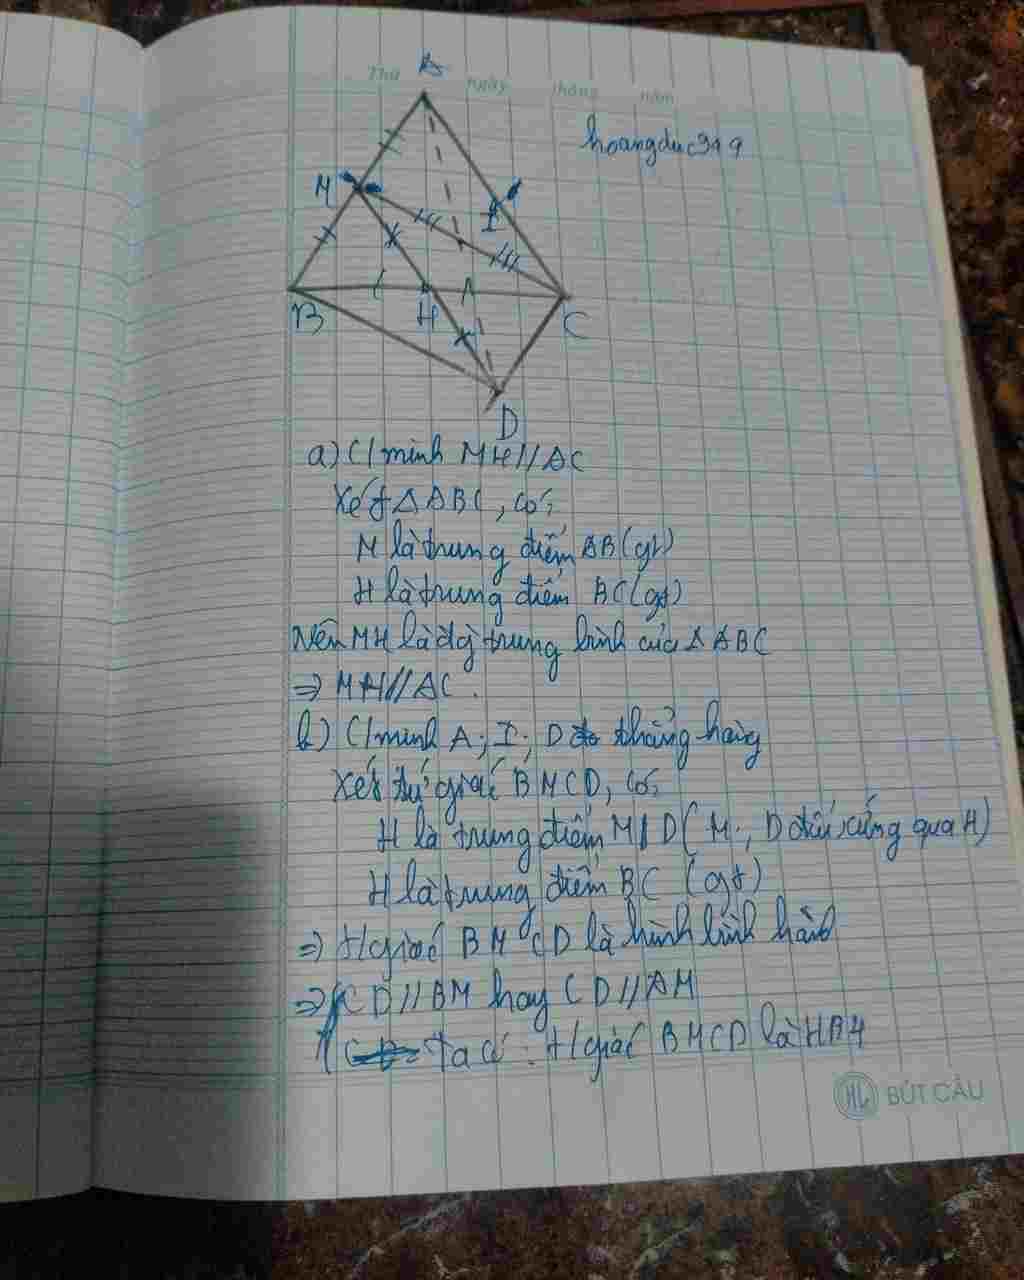 Thứ ngày tháng năm
A
hoangduc919
M
I
B
H
C
D
a) C/minh MH//AC
Xét ΔABC, có:
M là trung điểm AB (gt)
H là trung điểm BC (gt)
Nên MH là đg trung bình của ΔABC
=> MH//AC.
b) C/minh A; I; D thẳng hàng
Xét tứ giác BMCD, có:
H là trung điểm MD (M; D đối xứng qua H)
H là trung điểm BC (gt)
=> t/giác BMCD là hình bình hành
=> CD//BM hay CD//AM
Ta có: t/giác BMCD là HBH
HL BÚT CÂU